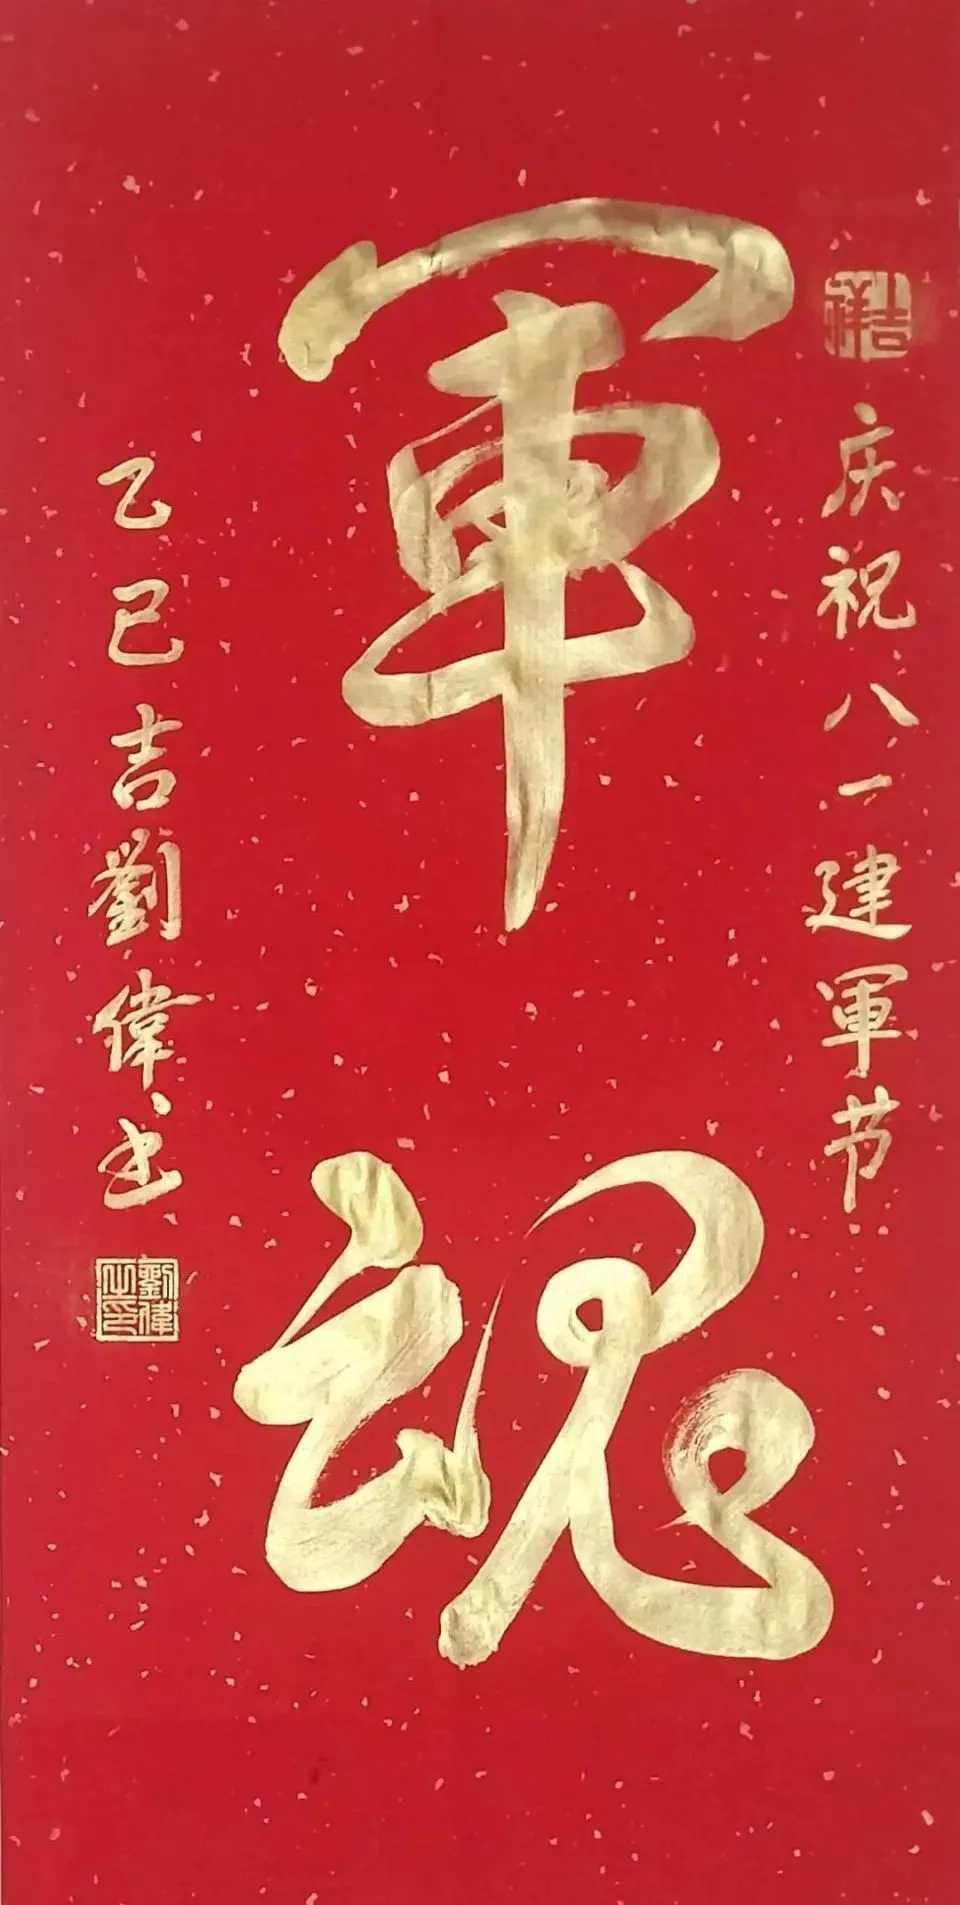 吉祥
庆祝八一建軍节
軍魂
乙巳吉劉偉书
劉偉之印